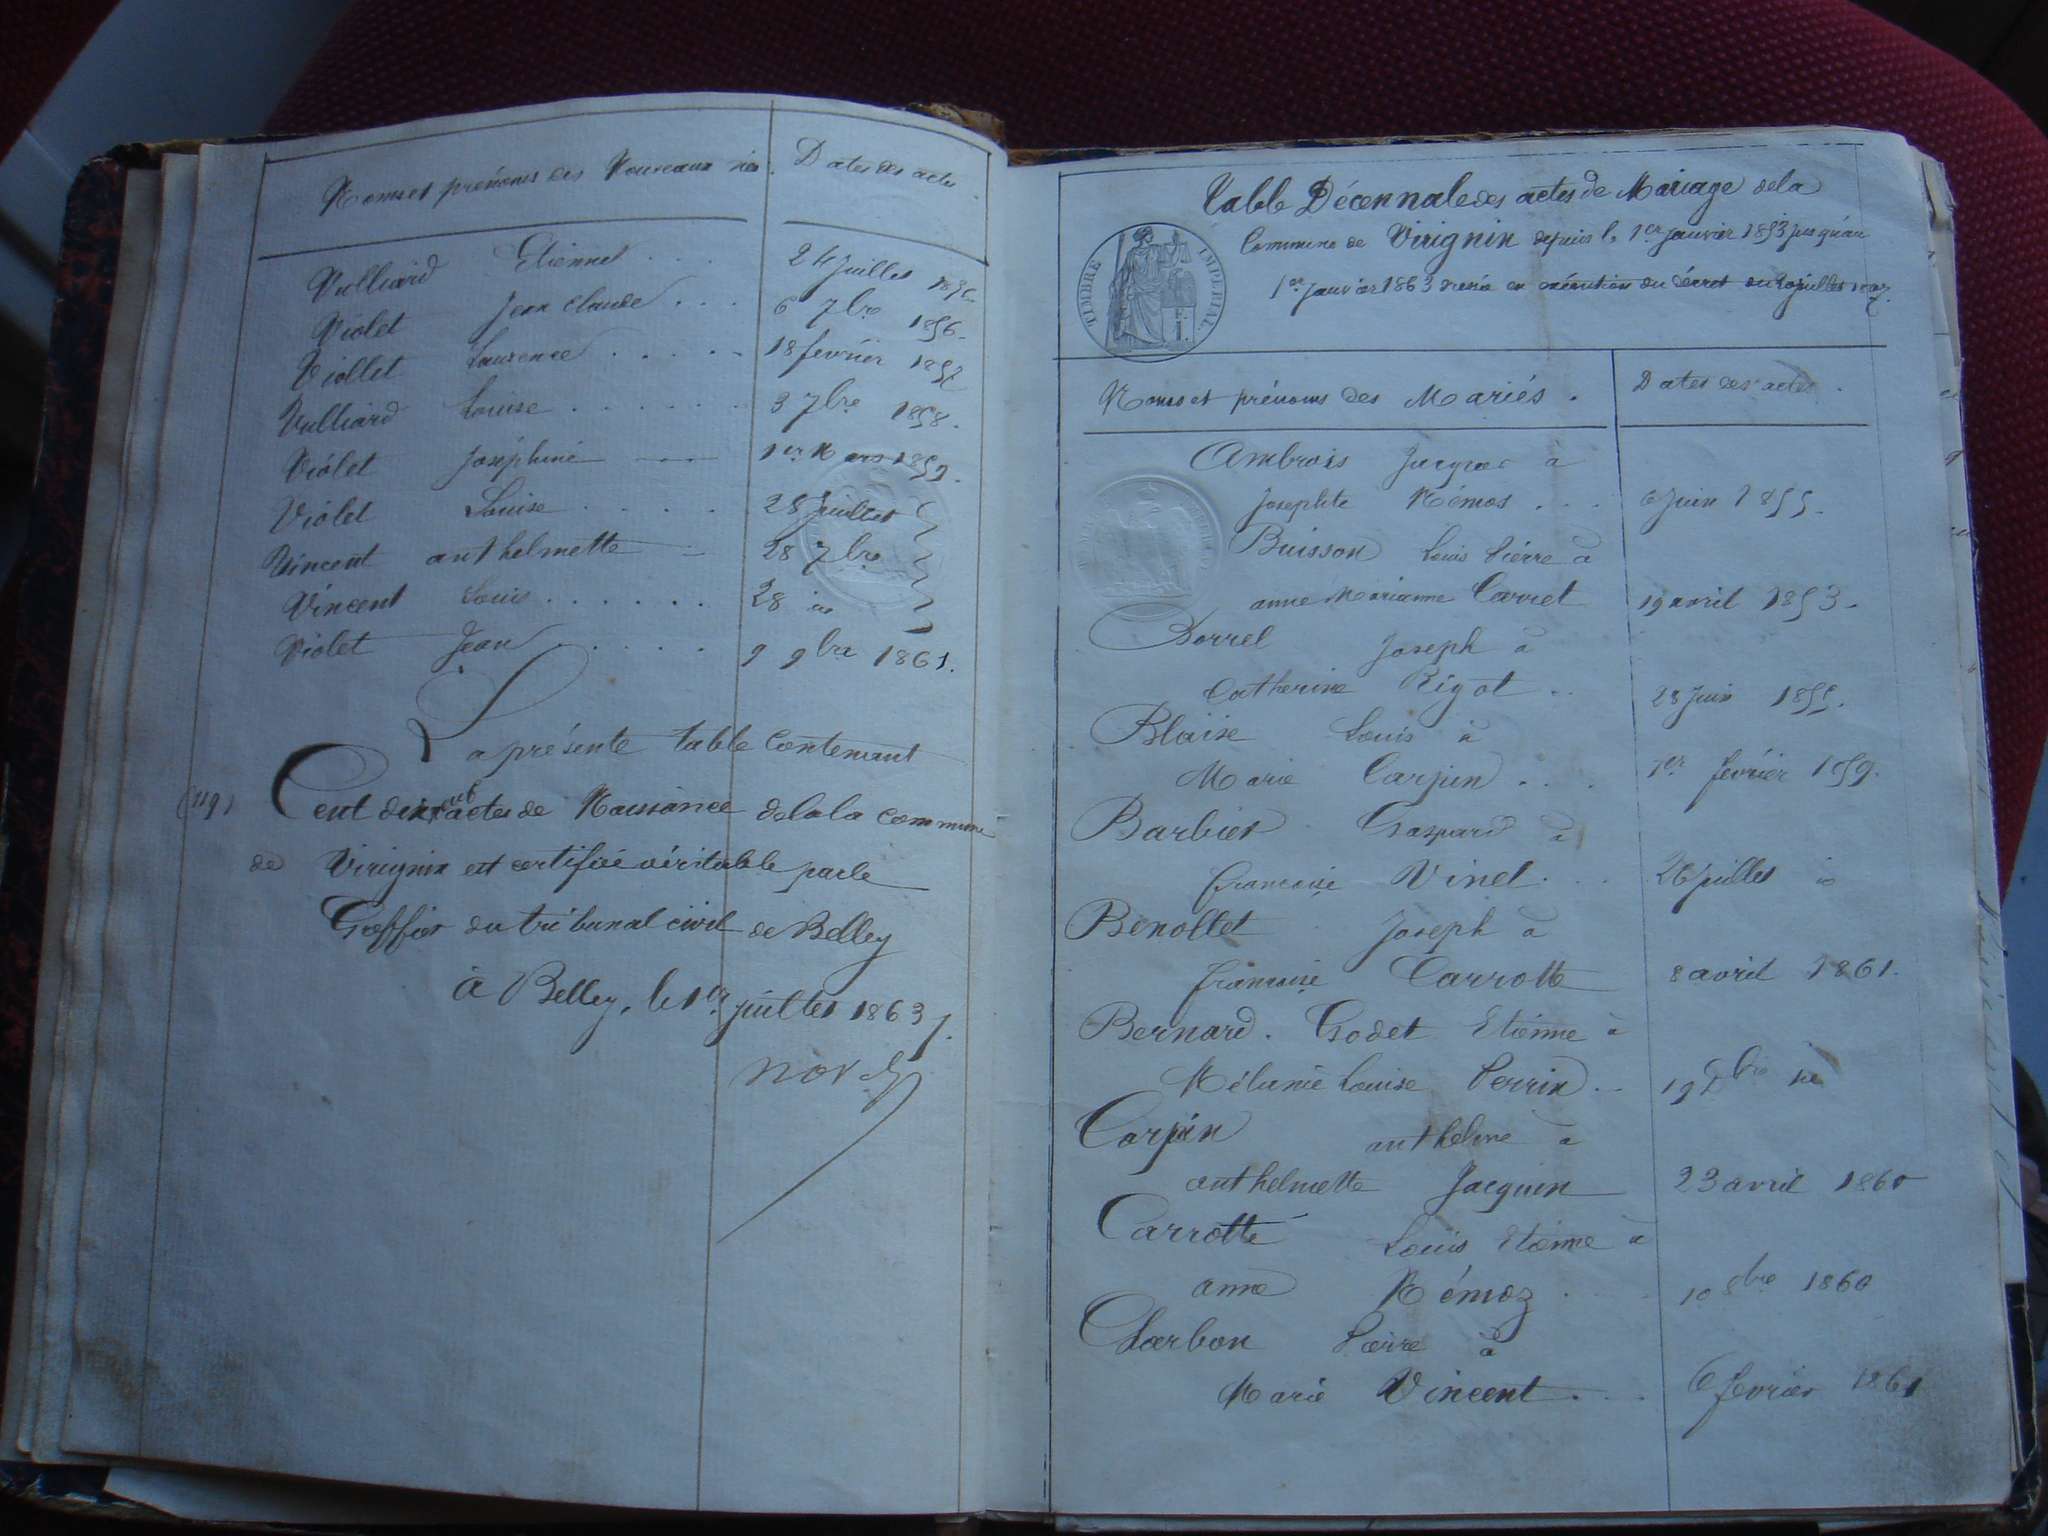 Noms et prénoms des Nouveaux nés. Dates des actes
Vulliard Etienne . . . 24 juillet
Violet Jean Claude . . . 6 7bre 1856.
Viollet Laurence . . . . . 18 fevrier
Vulliard Louise . . . . . . 3 7bre 1858.
Violet Joséphine 1er Mars 1859.
Violet Louise . . . . . 28 Juillet
Vincent anthelmette 28 7bre
Vincent Louis . . . . . . 28 id
Violet Jean . . . . . 9 9bre 1861.
La présente table Contenant
(119) Cent dix neuf actes de Naissance de la la commune
de Virignin est certifiée véritable par le
Greffier du tribunal civil de Belley
à Belley, le 1er juillet 1863
Table Décennale des actes de Mariage de la
TIMBRE IMPERIAL.
Commune de Virignin depuis le 1er janvier 1853 jusqu'au
1er Janvier 1863 en exécution du décret du 20 juillet
Noms et prénoms des Mariés. Dates des actes.
Ambrois Jacques à
Josephte Némos . . . 6 Juin 1855.
Buisson Louis Pierre à
anne Marianne Carret 19 avril 1853.
Borrel Joseph à
Catherine Rigot . . 28 Juin 1855.
Blaise Louis à
Marie Carpin . . . 1er février 1859.
Barbier Gaspard à
françoise Vinet . . . 26 juillet id
Benollet Joseph à
françoise Carrotte 8 avril 1861.
Bernard. Godet Etienne à
Mélanie Louise Perrin . . 19
Carpin anthelme à
anthelmette Jacquin 23 avril 1860
Carrotte Louis Etienne à
anne Némoz . . . 10 8bre 1860
Charbon Pierre à
Marie Vincent . . . 6 fevrier 1861